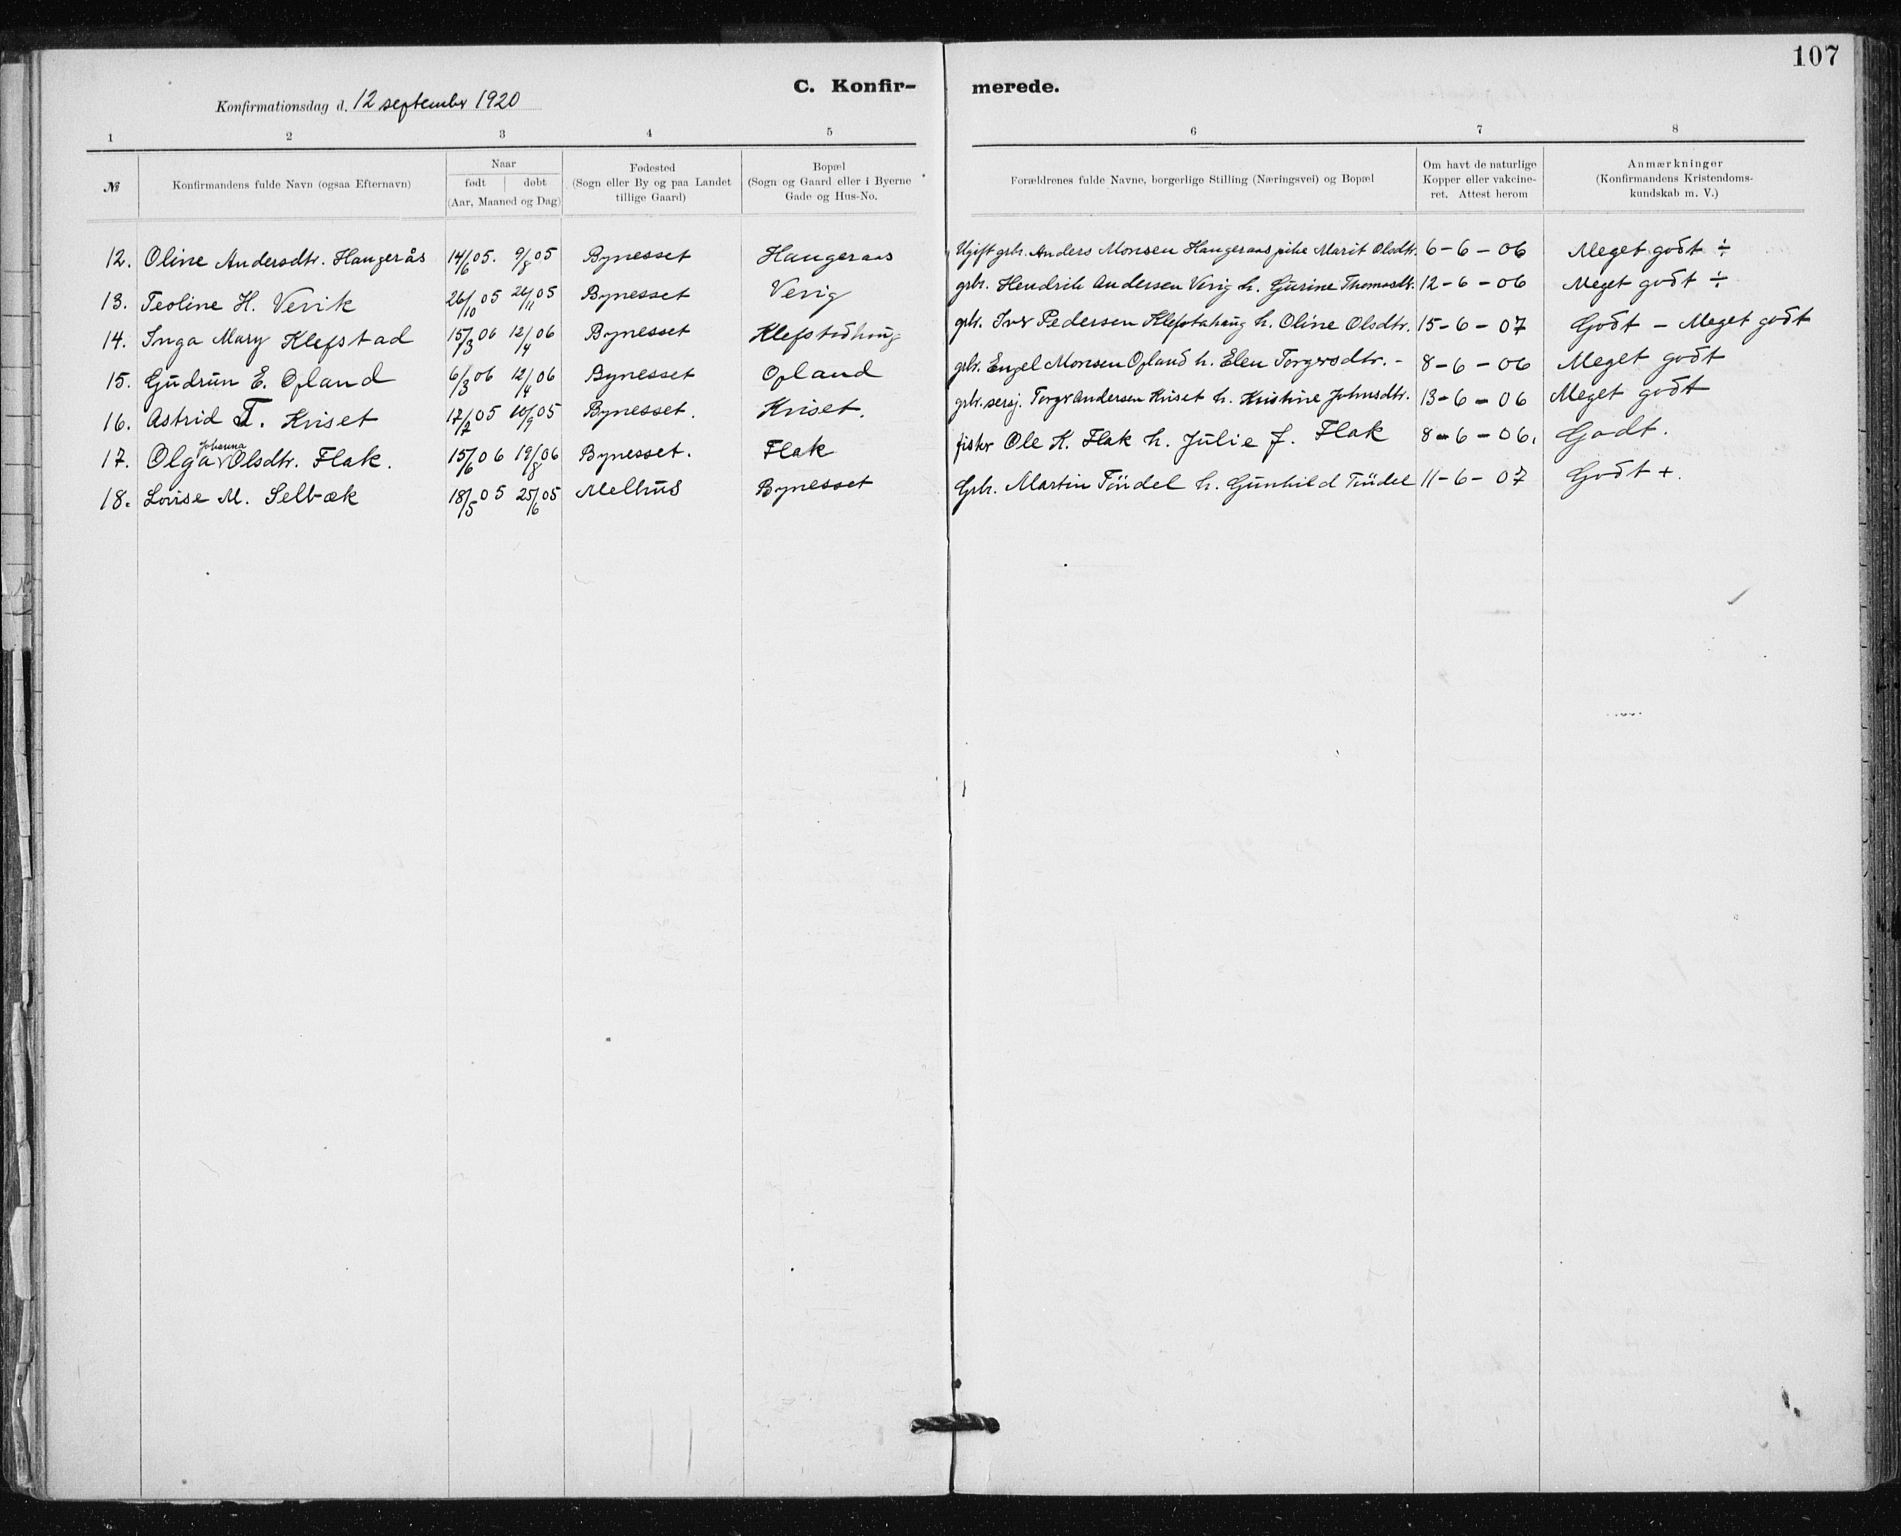 107
C. Konfir- merede.
Konfirmationsdag d. 12 september 1920
1 2 3 4 5 6 7 8
№ Konfirmandens fulde Navn (ogsaa Efternavn) Naar født døbt (Aar, Maaned og Dag) Fødested (Sogn eller By og paa Landet tillige Gaard) Bopæl (Sogn og Gaard eller i Byerne Gade og Hus-No. Forældrenes fulde Navne, borgerlige Stilling (Næringsvei) og Bopæl Om havt de naturlige Kopper eller vakcineret. Attest herom Anmærkninger (Konfirmandens Kristendomskundskab m. V.)
12. Oline Andersdtr. Haugerås 14/6 05. 9/8 05 Bynesset Haugeraas Ugift grbr. Anders Monsen Haugeraas pike Marit Olsdtr. 6-6-06 Meget godt ÷
13. Teoline H. Verik 26/10 05 26/11 05 Bynesset Verig grbr. Hendrik Andersen Verig h. Gurine Thomasdtr. 12-6-06 Meget godt ÷
14. Inga Mary Klefstad 15/3 06 12/4 06 Bynesset Klefstadhaug grbr. Iver Pedersen Klefstahaug h. Oline Olsdtr. 15-6-07 Godt - Meget godt
15. Gudrun E. Opland 6/3 06 12/4 06 Bynesset Opland grbr. Engel Monsen Opland h. Elen Torgersdtr. - 8-6-06 Meget godt
16. Astrid T. Kviset 17/7 05 10/9 05 Bynesset. Kviset. grbr. sersj. Torger Andersen Kviset h. Kristine Johnsdtr. 13-6-06 Meget godt
17. Olga Johanna Olsdtr. Flak. 15/6 06 19/8 06 Bynesset. Flak fisker Ole K. Flak h. Julie J. Flak 8-6-06. Godt.
18. Louise M. Selbæk 18/5 05 25/6 05 Melhus Bynesset Grbr. Martin Tündel h. Gunhild Tündel 11-6-07 Godt +.